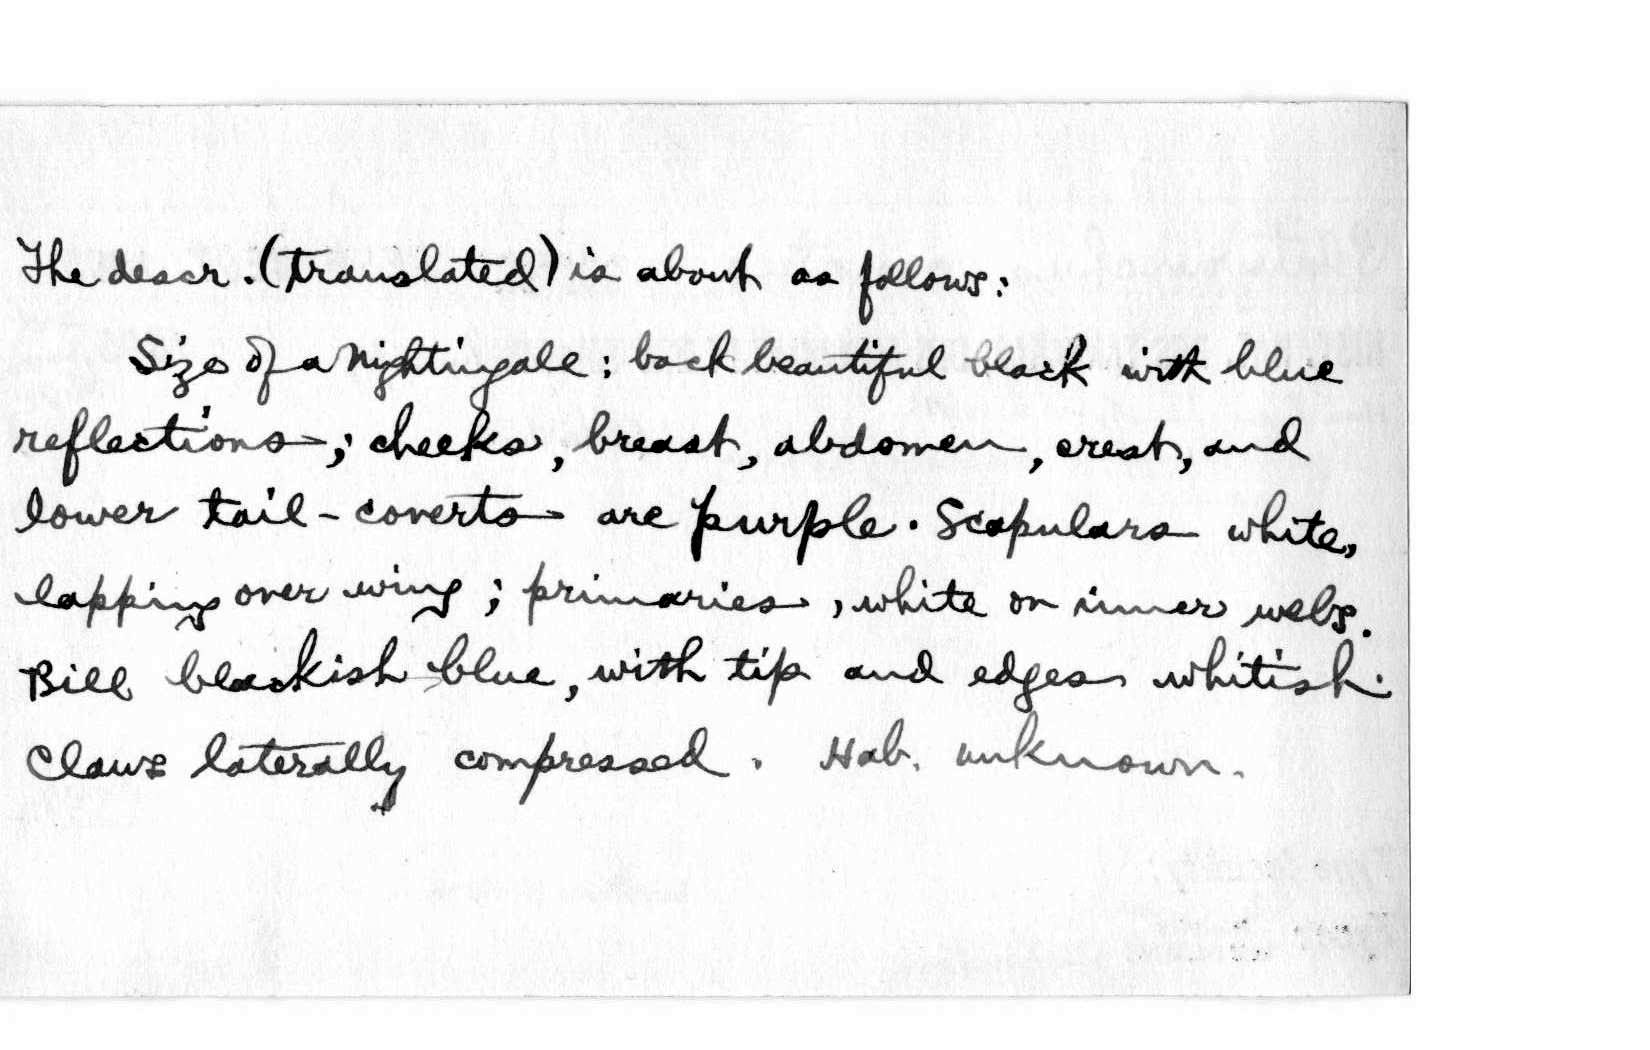 The descr. (translated) is about as follows:
Size of a Nightingale: back beautiful black with blue
reflections; cheeks, breast, abdomen, crest, and
lower tail-coverts are purple. Scapulars white,
lapping over wing; primaries, white on inner webs.
Bill blackish blue, with tip and edges whitish.
Claws laterally compressed. Hab. unknown.